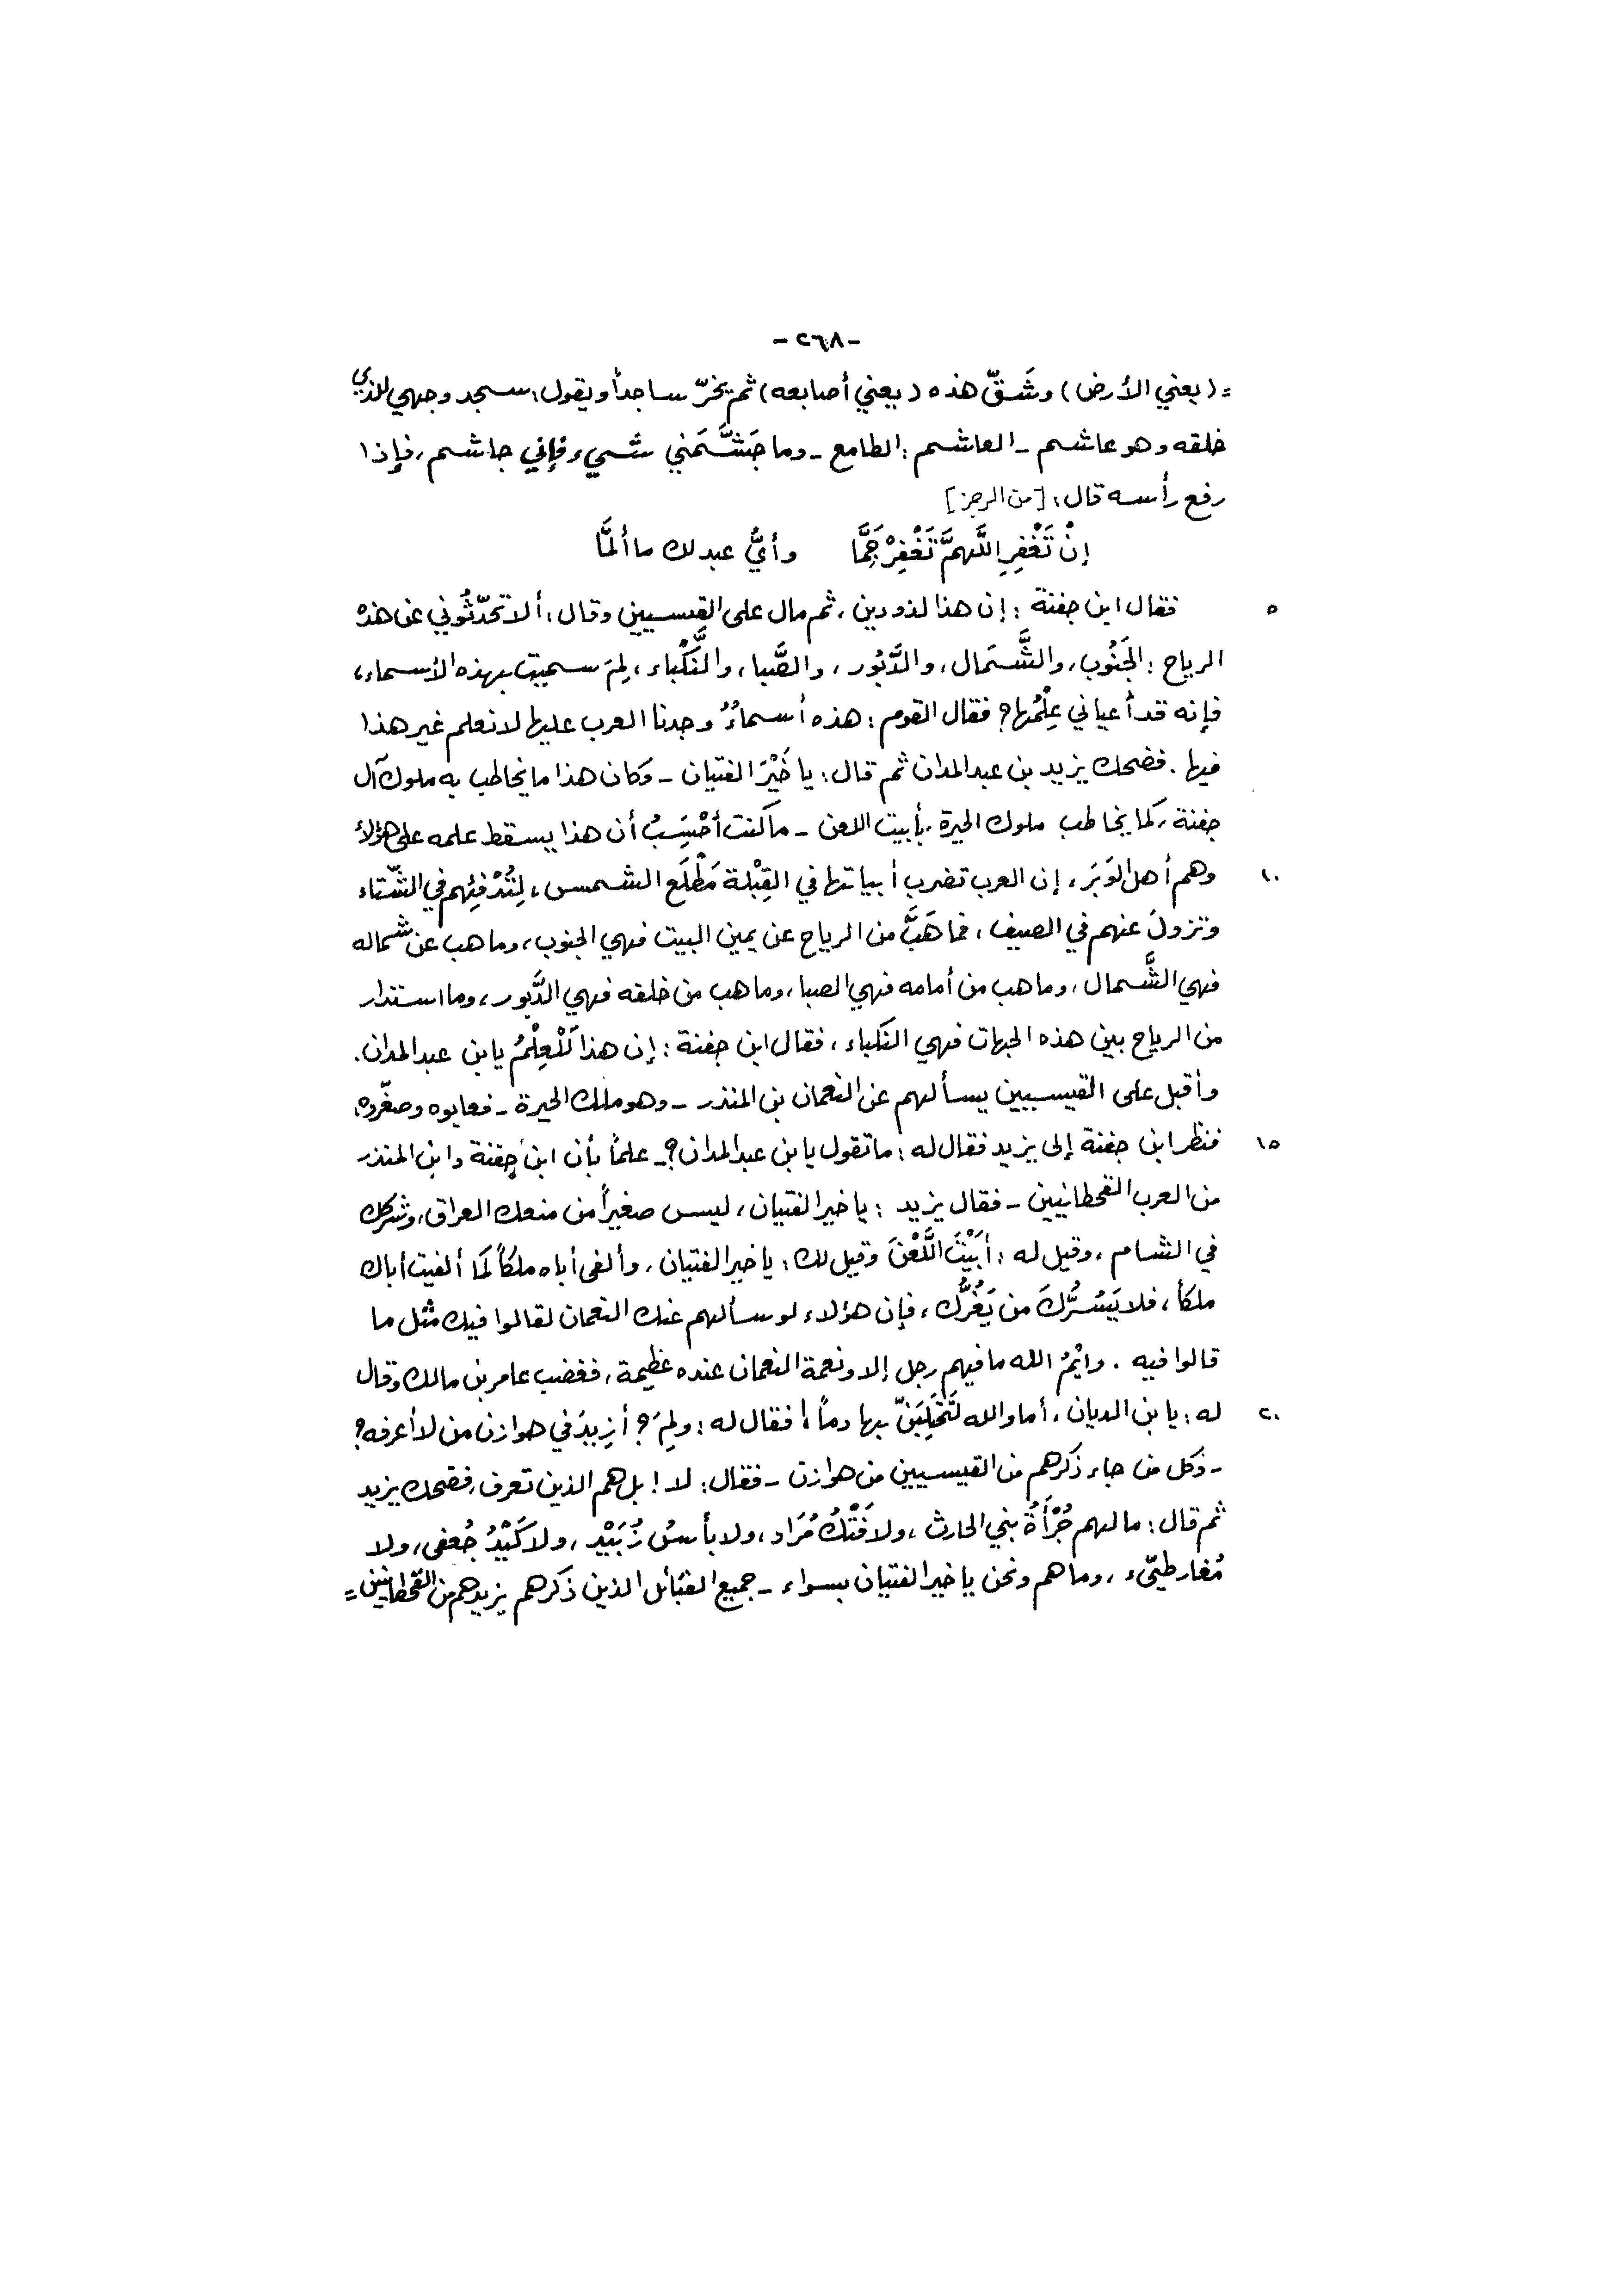 - ٢٦٨ -
= (يعني الأرض) وشَقّ هذه (يعني أصابعه) ثم يخرّ ساجداً ويقول: سجد وجهي للذي
خلقه وهو عاشم - العاشم: الطامع - وما جَشَّمَني شيء فإني جاشم، فإذا
رفع رأسه قال: [من الرجز]
إنْ تَغْفِرِ اللَّهمَّ تَغْفِرْ جَمَّا وأيُّ عبد لك ما ألمَّا
٥ فقال ابن جفنة: إن هذا لذو دين، ثم مال على القيسيين وقال: ألا تحدّثُوني عن هذه
الرياح: الجَنُوب، والشَّمَال، والدَّبُور، والصَّبا، والنَّكْباء، لِمَ سميت بهذه الأسماء،
فإنه قد أعياني عِلْمُها؟ فقال القوم: هذه أسماءٌ وجدنا العرب عليها لا نعلم غير هذا
فيها. فضحك يزيد بن عبد المدان ثم قال: يا خَيْرَ الفتيان - وكان هذا ما يخاطب به ملوك آل
جفنة، كما يخاطب ملوك الحيرة، بأبيت اللعن - ما كنت أحْسَِبُ أن هذا يسقط علمه على هؤلاء
١٠ وهم أهل الوَبَر، إن العرب تضرب أبياتها في القِبْلة مَطْلَع الشمس، لِتُدْفِئهم في الشّتاء
وتزولَ عنهم في الصيف، فما هَبَّ من الرياح عن يمين البيت فهي الجنوب، وما هب عن شماله
فهي الشَّمال، وما هب من أمامه فهي الصبا، وما هب من خلفه فهي الدَّبور، وما استدار
من الرياح بين هذه الجهات فهي النكباء، فقال ابن جفنة: إن هذا لَلْعِلْمُ يا بن عبد المدان.
وأقبل على القيسيين يسألهم عن النعمان بن المنذر - وهو ملك الحيرة - فعابوه وصغّروه،
١٥ فنظر ابن جفنة إلى يزيد فقال له: ما تقول يا بن عبد المدان؟ - علماً بأن ابن جفنة وابن المنذر
من العرب القحطانيين - فقال يزيد: يا خير الفتيان، ليس صغيراً من منعك العراق، وشركك
في الشام، وقيل له: أبَيْتَ اللَّعْنَ وقيل لك: يا خير الفتيان، وألفى أباه ملكاً كما ألفيت أباك
ملكاً، فلا يَسُرُّكَ من يَغُرُّك، فإن هؤلاء لو سألهم عنك النعمان لقالوا فيك مثل ما
قالوا فيه. وايْمُ الله ما فيهم رجل إلا ونعمة النعمان عنده عظيمة، فغضب عامر بن مالك وقال
٢٠ له: يا بن الديان، أما والله لَتَحْلِبَنّ بها دماً! فقال له: ولِمَ؟ أزِيدَ في هوازن من لا أعرفه؟
- وكل من جاء ذكرهم من القيسيين من هوازن - فقال: لا! بل هم الذين تعرف، فضحك يزيد
ثم قال: ما لهم جُرْأَةُ بني الحارث، ولا فَتْكُ مُرَاد، ولا بأسُ زُبَيْد، ولا كَيْدُ جُعفى، ولا
مُغار طيّىء، وما هم ونحن يا خير الفتيان بسواء - جميع القبائل الذين ذكرهم يزيد هم من القحطانيين =